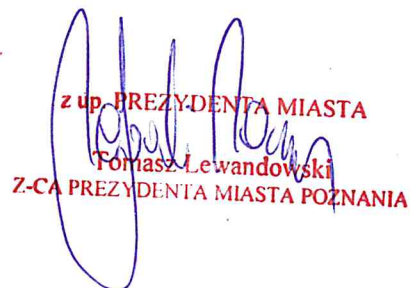 z up. PREZYDENTA MIASTA
Tomasz Lewandowski
Z-CA PREZYDENTA MIASTA POZNANIA